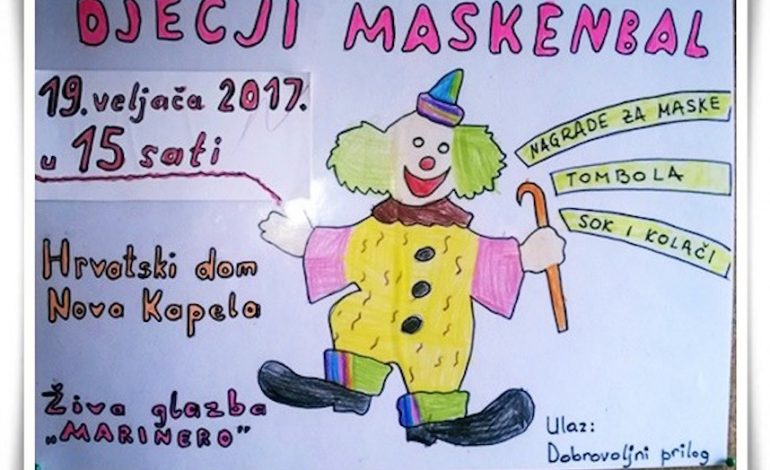 DJEČJI MASKENBAL
19. veljača 2017.
u 15 sati
NAGRADE ZA MASKE
TOMBOLA
SOK I KOLAČI
Hrvatski dom
Nova Kapela
Živa glazba
„MARINERO"
Ulaz:
Dobrovoljni prilog